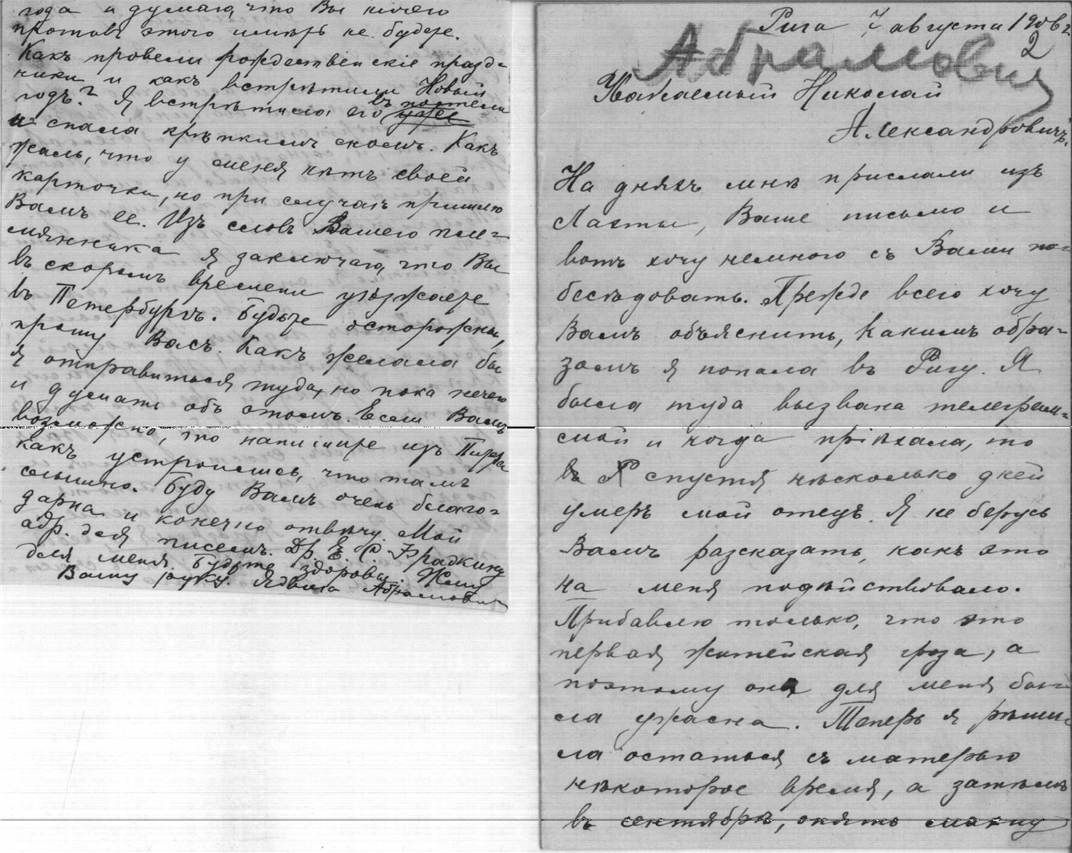 года и думаю, что Вы ничего
противъ этого имѣть не будете.
Какъ провели рождественскіе празд-
ники и какъ встрѣтили Новый
годъ? Я встрѣтила его въ постели
и спала крѣпкимъ сномъ. Какъ
жаль, что у меня нѣтъ своей
карточки, но при случаѣ пришлю
Вамъ ее. Изъ словъ Вашего пле-
мянника я заключаю, что Вы
въ скоромъ времени уѣзжаете
въ Петербургъ. Будьте осторожны,
прошу Васъ. Какъ желала бы
я отправиться туда, но пока нечего
и думать объ этомъ. Если Вамъ
возможно, то напишите изъ Питера
какъ устроились, что тамъ
слышно. Буду Вамъ очень благо-
дарна и конечно отвѣчу. Мой
адр. для писемъ. Др. Е. С. Фрадкину
для меня. Будьте здоровы. Жму
Вашу руку. Ядвига Абрамович
Рига 7 августа 1906 г.
2
Абрамович
Уважаемый Николай
Александровичъ.
На дняхъ мнѣ прислали изъ
Лахты, Ваше письмо и
вотъ хочу немного съ Вами по-
бесѣдовать. Прежде всего хочу
Вамъ объяснить, какимъ обра-
зомъ я попала въ Ригу. Я
была туда вызвана телеграм-
мой и когда пріѣхала, то
спустя нѣсколько дней
умеръ мой отецъ. Я не берусь
Вамъ разсказать, какъ это
на меня подѣйствовало.
Прибавлю только, что это
первая житейская гроза, а
поэтому она для меня бы-
ла ужасна. Теперь я рѣши-
ла остаться съ матерью
нѣкоторое время, а затѣмъ
въ сентябрѣ, опять